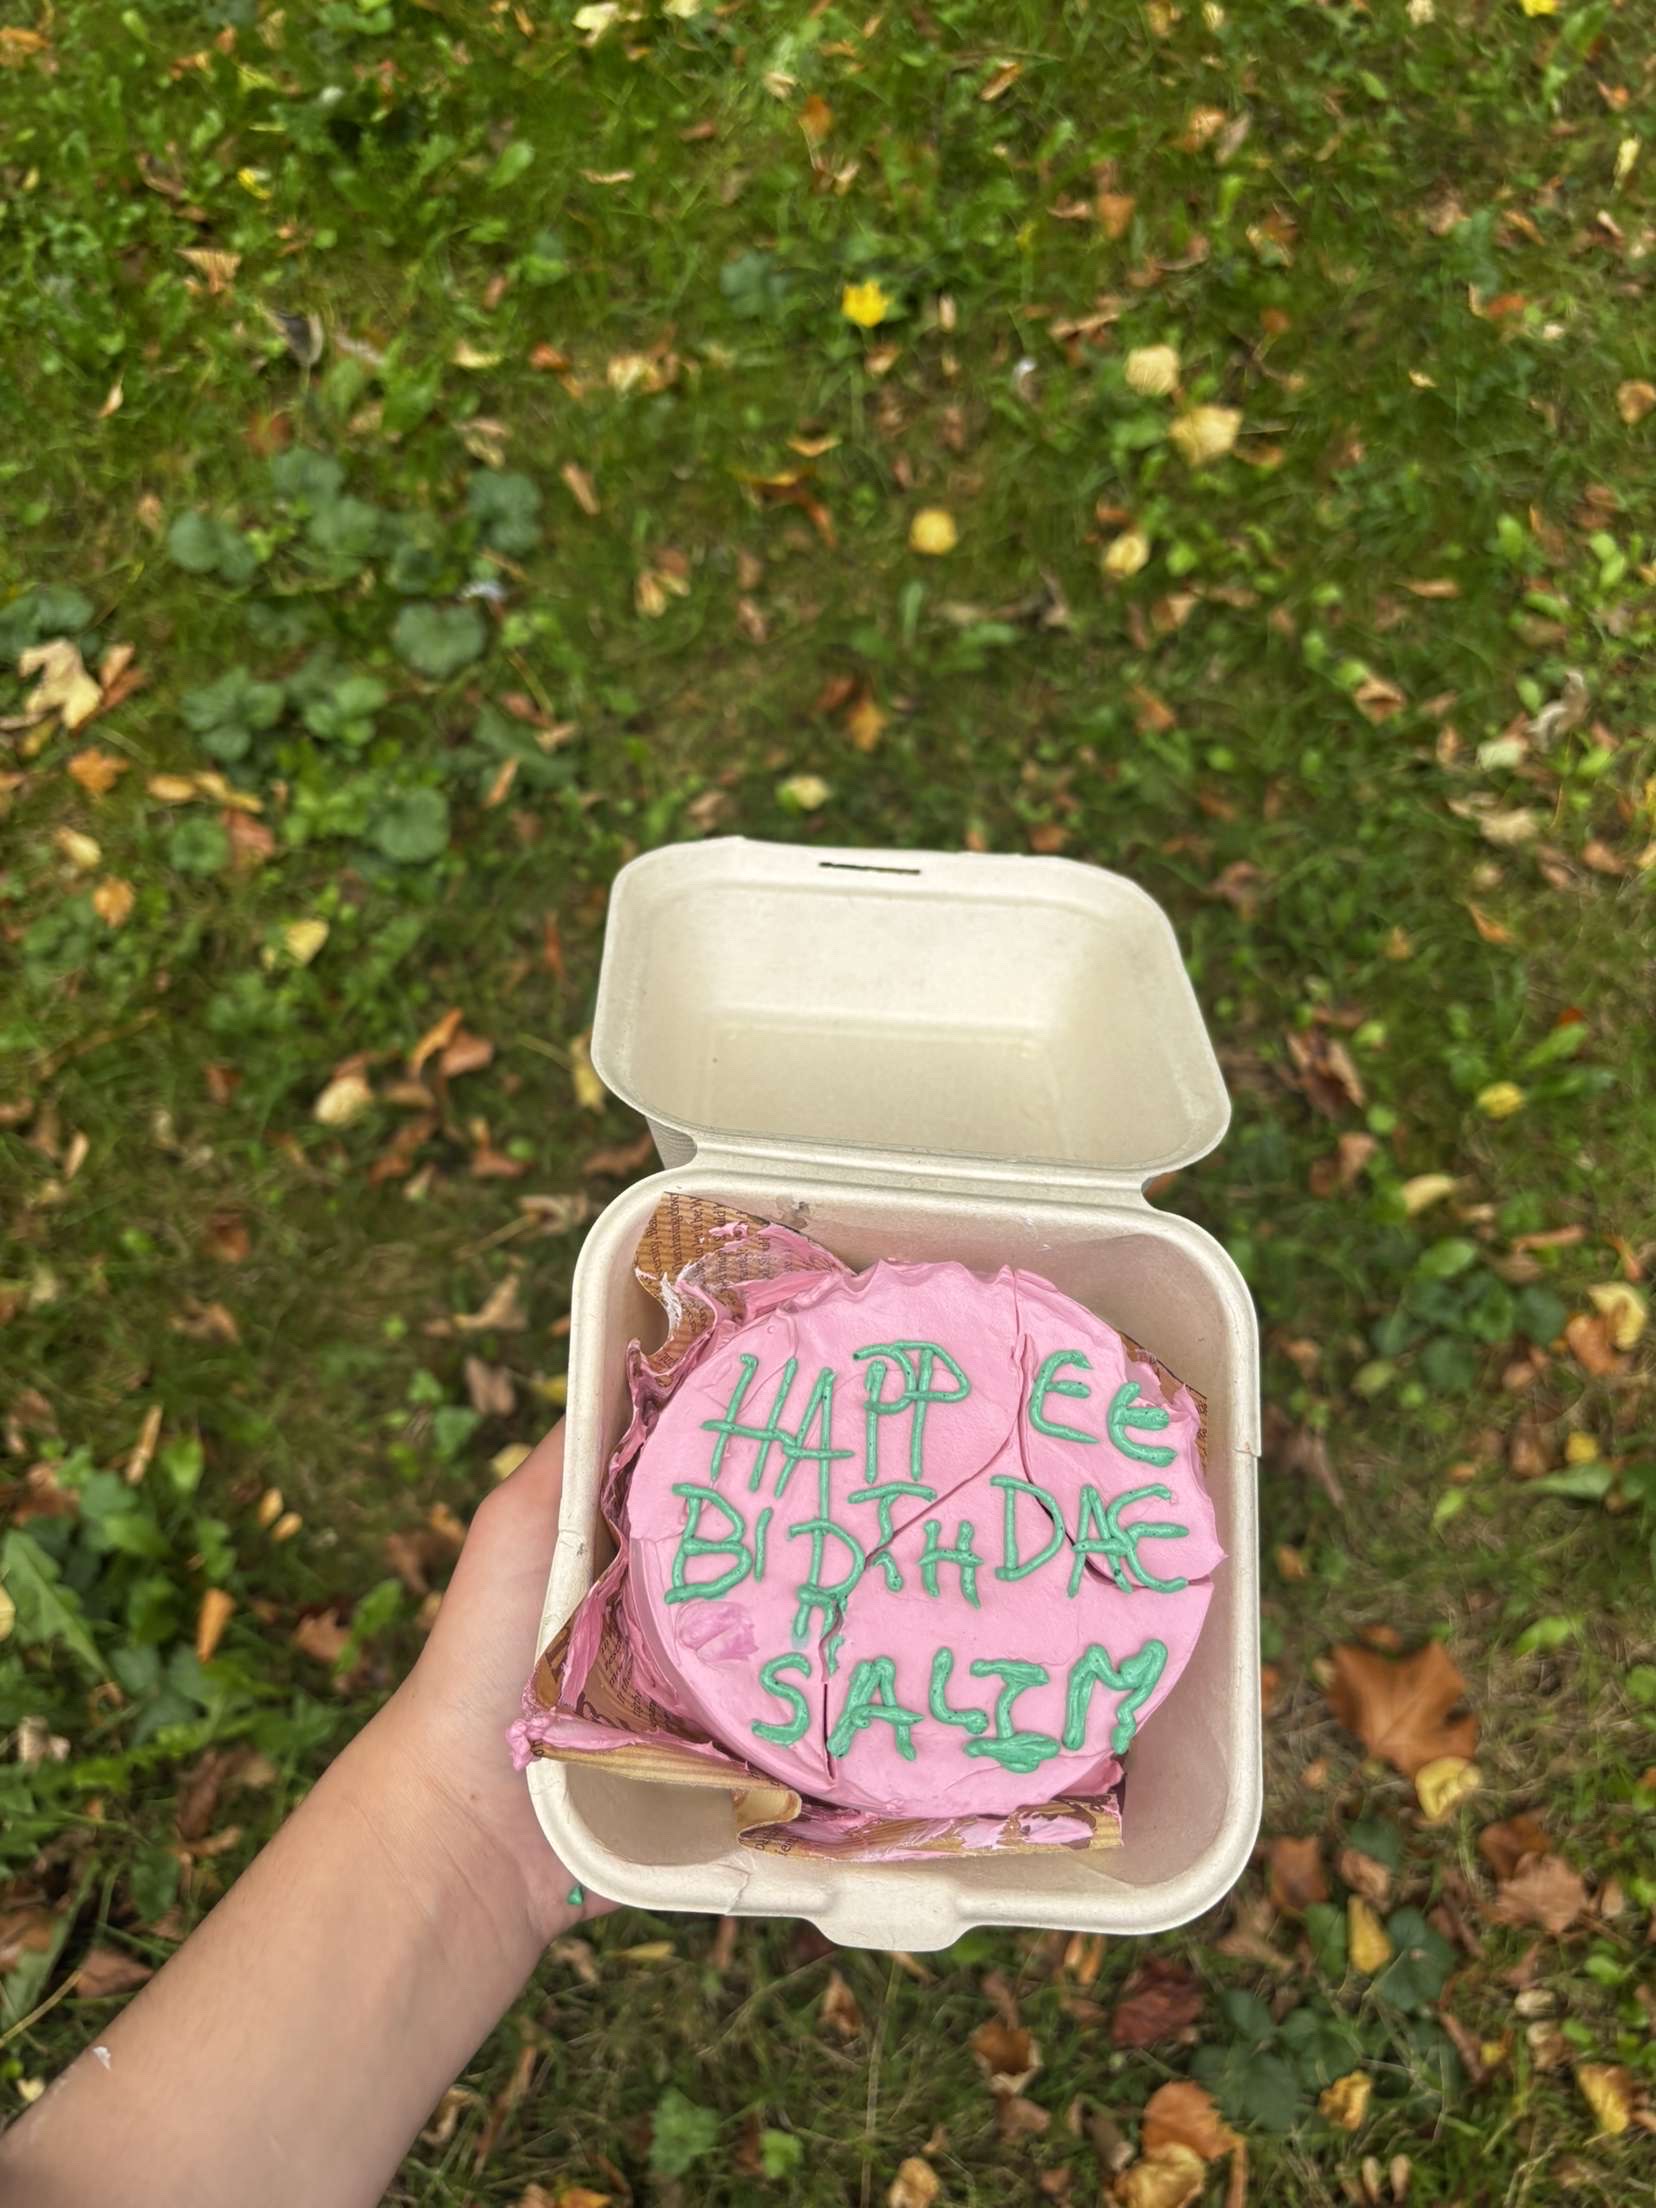 HAPPEE
BIRTHDAE
SALIM